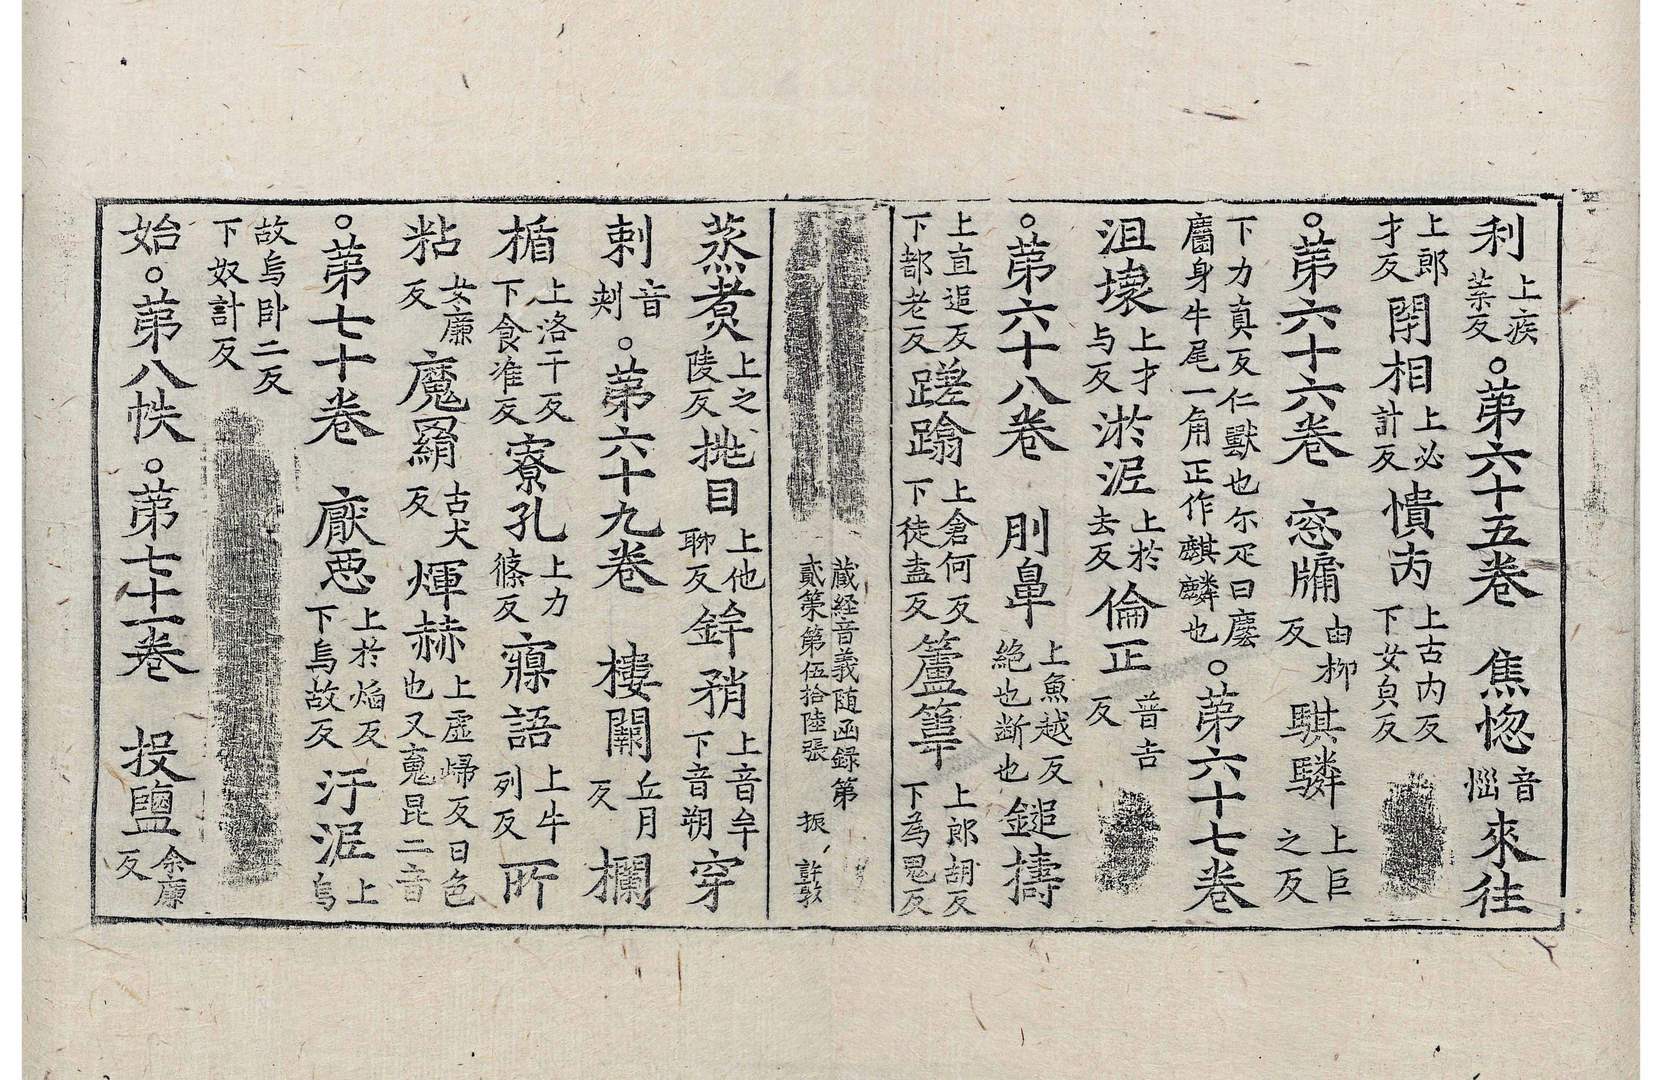 利上疾葉反。第六十五卷 焦惚音惱來往
上郎才反閇相上必計反憒丙上古內反下女皃反
。第六十六卷 窓牖由柳反騏驎上巨之反
下力真反仁獸也尓疋曰麐麕身牛尾一角正作麒麟也。第六十七卷
沮壞上才与反淤泥上於去反倫正音古反
。第六十八卷 刖鼻上魚越反絕也断也鎚擣
上直追反下都老反蹉蹹上倉何反下徒盍反簏篿上郎胡反下為鬼反
藏経音義随函録第貳第第伍拾陸張 振 許敦
蒸煑上之陵反挑目上他聊反鉾矟上音牟下音朔穿
刺音刾。第六十九卷 樓闕丘月反欄
楯上洛干反下食准反寮孔上力篠反寱語上牛列反所
粘女廉反魔羂古犬反煇赫上虛歸反日色也又䰟昆二音
。第七十卷 厭惡上於焰反下烏故反汙泥上烏
故烏卧二反下奴計反
始。第八帙。第七十一卷 投鹽余廉反